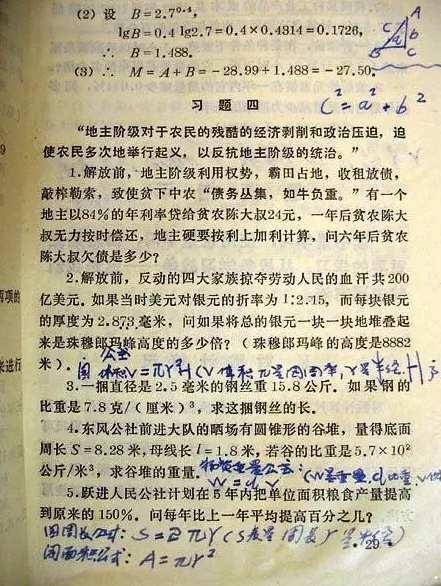 (2) 设 B=2.7⁰·⁴,
lgB=0.4 lg2.7=0.4×0.4314=0.1726,
∴ B=1.488.
A
c a b
B C
(3) ∴ M=A+B=-28.99+1.488=-27.50.
习题四
C²=a²+b²
“地主阶级对于农民的残酷的经济剥削和政治压迫，迫
使农民多次地举行起义，以反抗地主阶级的统治。”
1.解放前，地主阶级利用权势，霸田占地，收租放债，
敲榨勒索，致使贫下中农“债务丛集，如牛负重。”有一个
地主以84%的年利率贷给贫农陈大叔24元，一年后贫农陈大
叔无力按时偿还，地主硬要按利上加利计算，问六年后贫农
陈大叔欠债是多少？
2.解放前，反动的四大家族掠夺劳动人民的血汗共200
亿美元。如果当时美元对银元的折率为1:2.15，而每块银元
的厚度为2.873毫米，问如果将总的银元一块一块地堆叠起
来是珠穆郎玛峰高度的多少倍？（珠穆郎玛峰的高度是8882
米）.
V=πr²H (V体积 π是圆周率, r是半径 H
3.一捆直径是2.5毫米的钢丝重15.8公斤。如果钢的
比重是7.8克/（厘米）³，求这捆钢丝的长。
4.东风公社前进大队的晒场有圆锥形的谷堆，量得底面
周长S=8.28米,母线长l=1.8米,若谷的比重是5.7×10²
公斤/米³，求谷堆的重量.
W=d v
5.跃进人民公社计划在5年内把单位面积粮食产量提高
到原来的150%。问每年比上一年平均提高百分之几？
圆周长公式: S=2πr (S表是周长r是半径)
圆面积公式: A=πr²
·29·